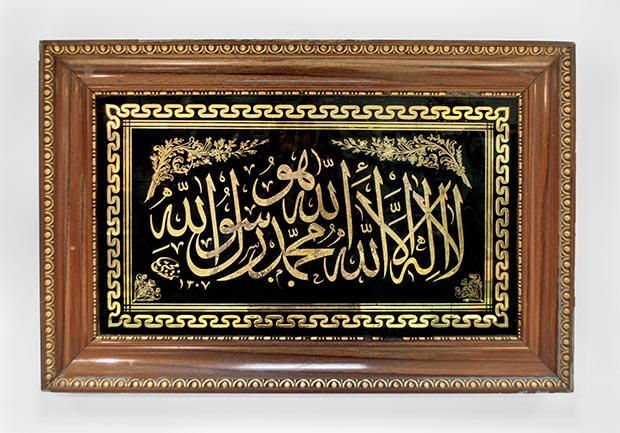 هو الله
لا اله الا الله محمد رسول الله
١٣٠٧